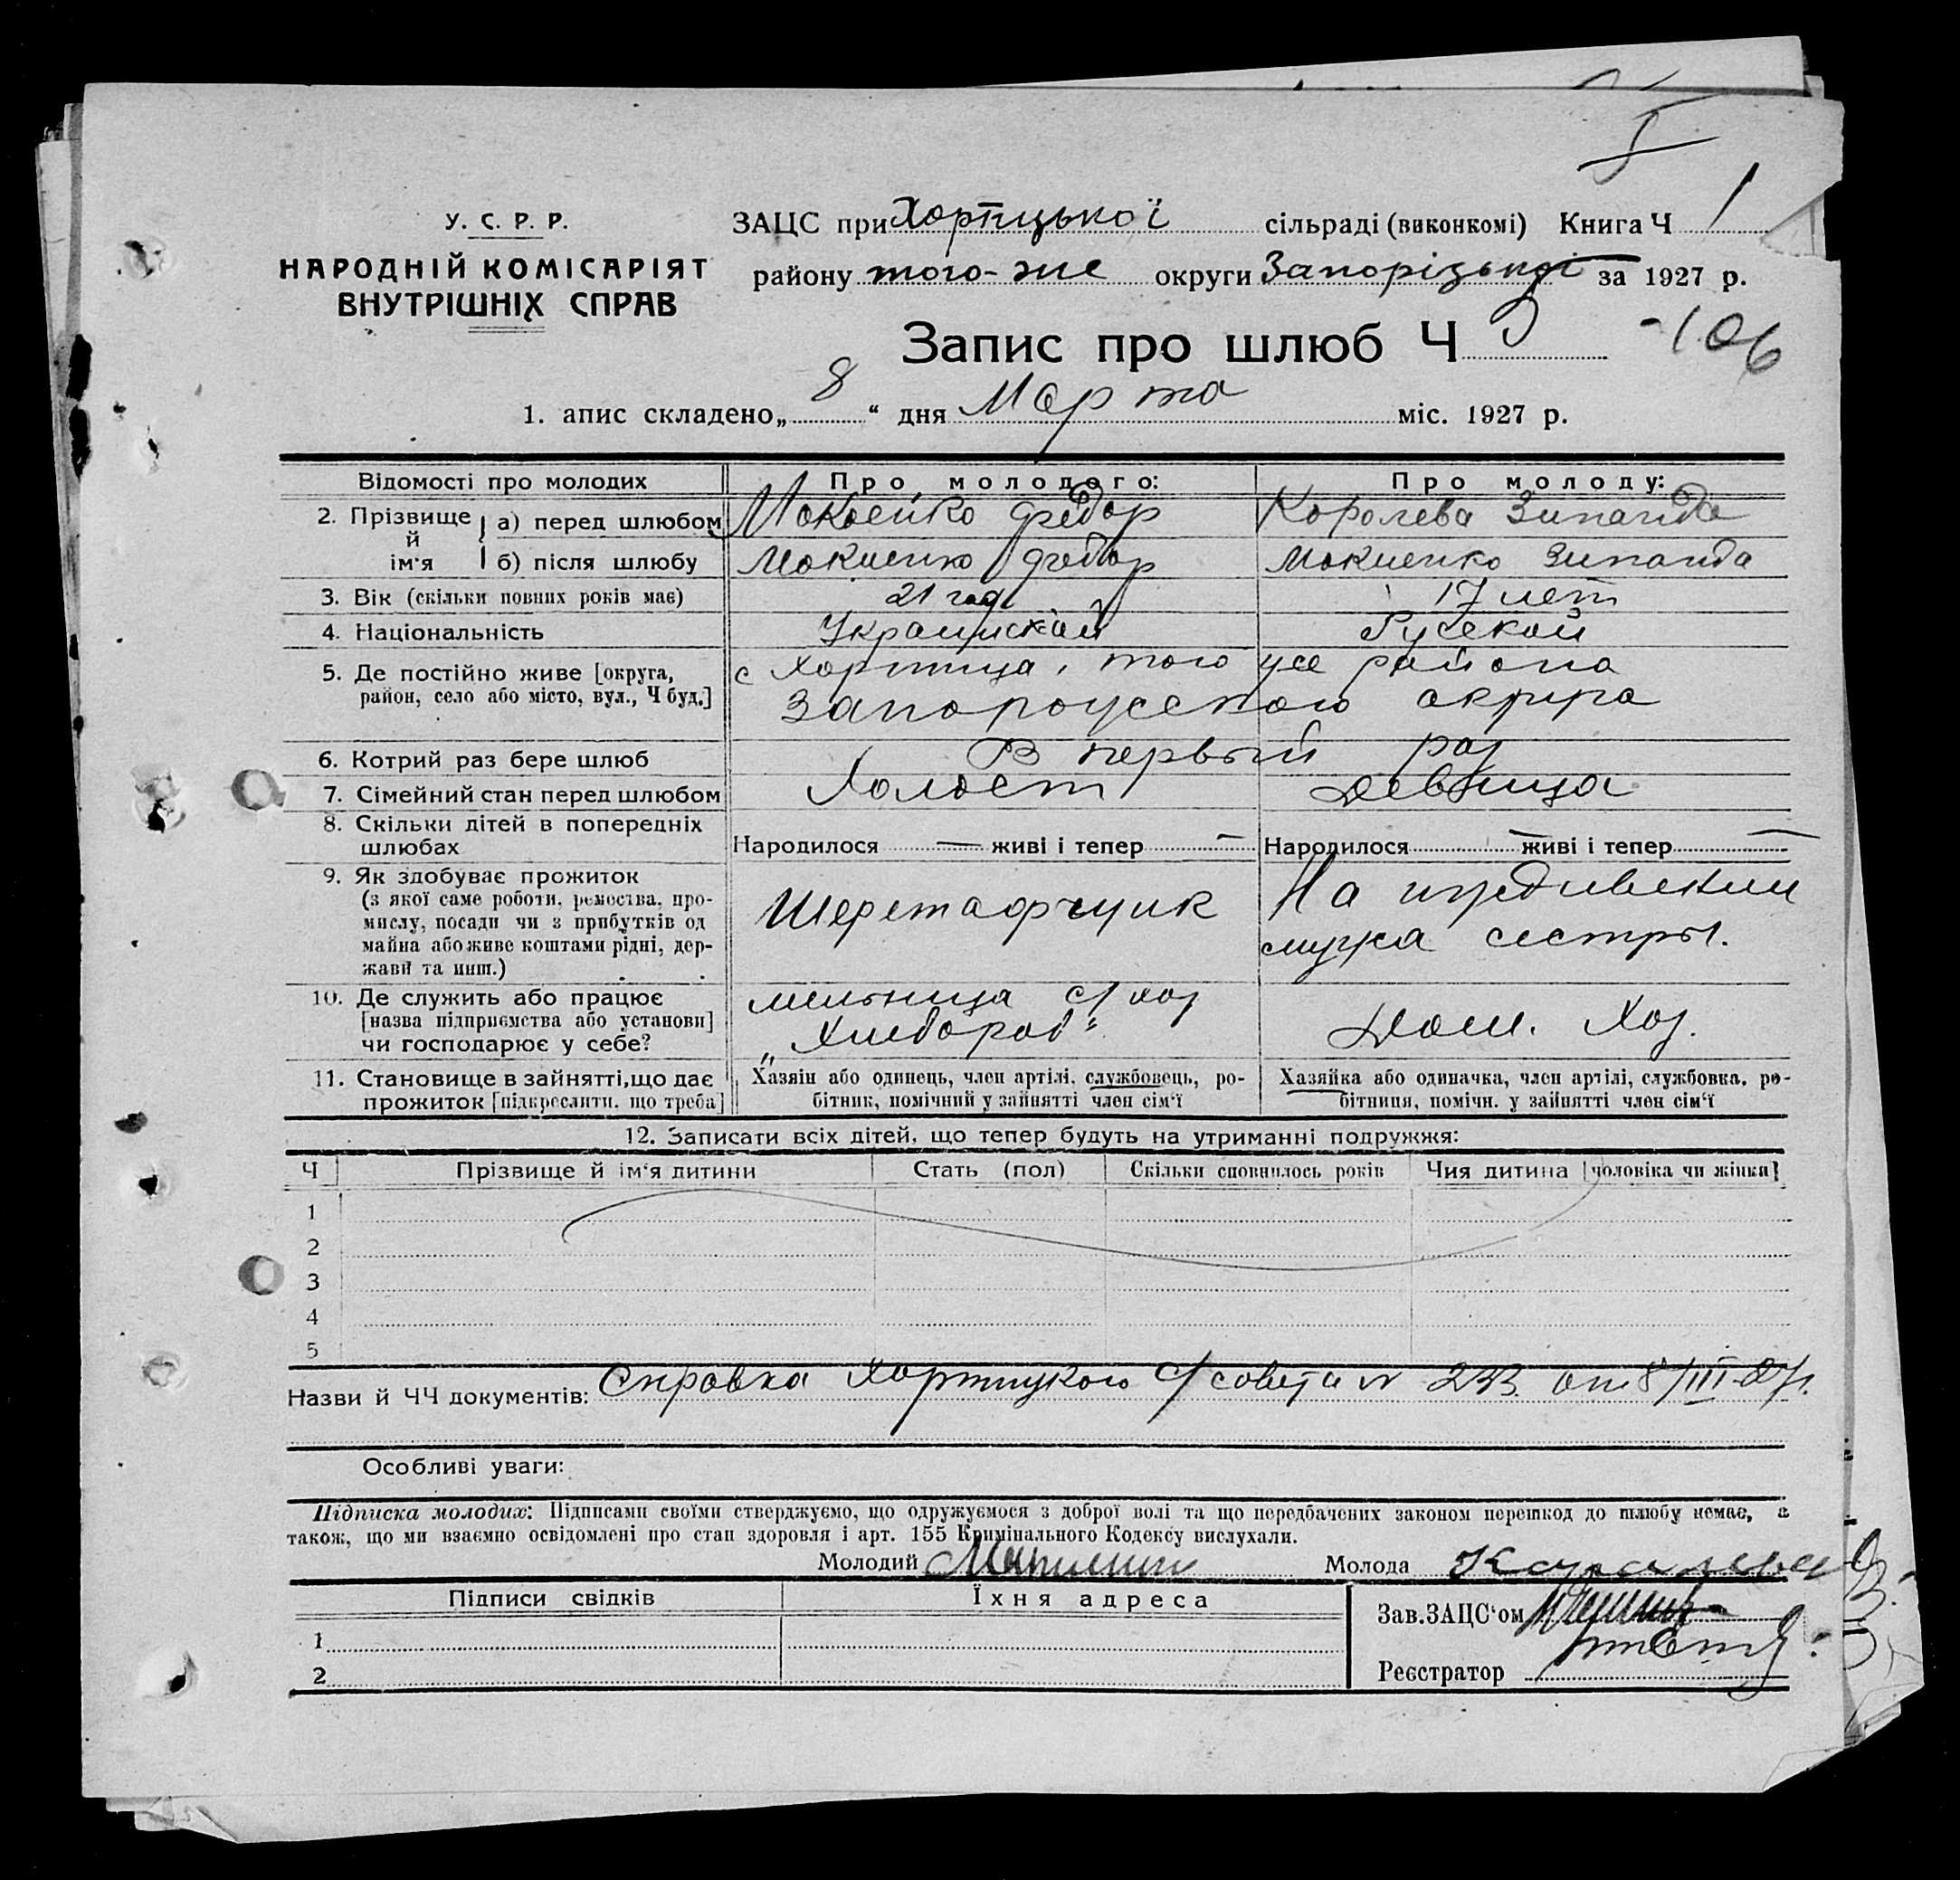 У. С. Р. Р.
НАРОДНІЙ КОМІСАРІЯТ
ВНУТРІШНІХ СПРАВ
ЗАЦС при Хортицької сільраді (виконкомі) Книга Ч 1
району того-же округи Запорізької за 1927 р.
Запис про шлюб Ч -106
1. апис складено „ 8 “ дня Марта міс. 1927 р.
Відомості про молодих Про молодого: Про молоду:
2. Прізвище й ім'я а) перед шлюбом Мокиенко Федор Королева Зинаида
б) після шлюбу Мокиенко Федор Мокиенко Зинаида
3. Вік (скільки повних років має) 21 год 17 лет
4. Національність Украинской Русской
5. Де постійно живе [округа, район, село або місто, вул., Ч буд.] с Хортица, того же района
Запорожского округа
6. Котрий раз бере шлюб В первый раз
7. Сімейний стан перед шлюбом Холост Девица
8. Скільки дітей в попередніх шлюбах Народилося — живі і тепер — Народилося — живі і тепер —
9. Як здобуває прожиток
(з якої саме роботи, ремества, промислу, посади чи з прибутків од майна або живе коштами рідні, державі та инш.)
На иждивении
мужа сестры.
10. Де служить або працює
[назва підприємства або установи]
чи господарює у себе?
мельница с/хоз
„Хлебороб“
Дом. Хоз.
11. Становище в зайнятті, що дає прожиток [підкреслити, що треба]
Хазяін або одинець, член артілі, службовець, робітник, помічний у зайнятті член сім'ї
Хазяйка або одиначка, член артілі, службовка, робітниця, помічн. у зайнятті член сім'ї
12. Записати всіх дітей, що тепер будуть на утриманні подружжя:
Ч Прізвище й ім'я дитини Стать (пол) Скільки сповнилось років Чия дитина [чоловіка чи жінки]
1
2
3
4
5
Назви й ЧЧ документів: Справка Хортицкого с/совета № 233 от 8/III-27г.
Особливі уваги:
Підписка молодих: Підписами своїми стверджуємо, що одружуємося з доброї волі та що передбачених законом перешкод до шлюбу немає, а
також, що ми взаємно освідомлені про стан здоровля і арт. 155 Кримінального Кодексу вислухали.
Молодий Молода Каралева
Підписи свідків Їхня адреса Зав. ЗАЦС'ом
1
2 Реєстратор